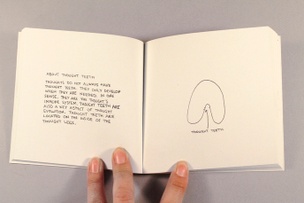 ABOUT THOUGHT TEETH
THOUGHTS DO NOT ALWAYS HAVE
THOUGHT TEETH. THEY ONLY DEVELOP
WHEN THEY ARE NEEDED. IN ONE
SENSE, THEY ARE THE THOUGHT'S
IMMUNE SYSTEM. THOUGHT TEETH ARE
ALSO A KEY ASPECT OF THOUGHT
EVOLUTION. THOUGHT TEETH ARE
LOCATED ON THE INSIDE OF THE
THOUGHT
THOUGHT TEETH